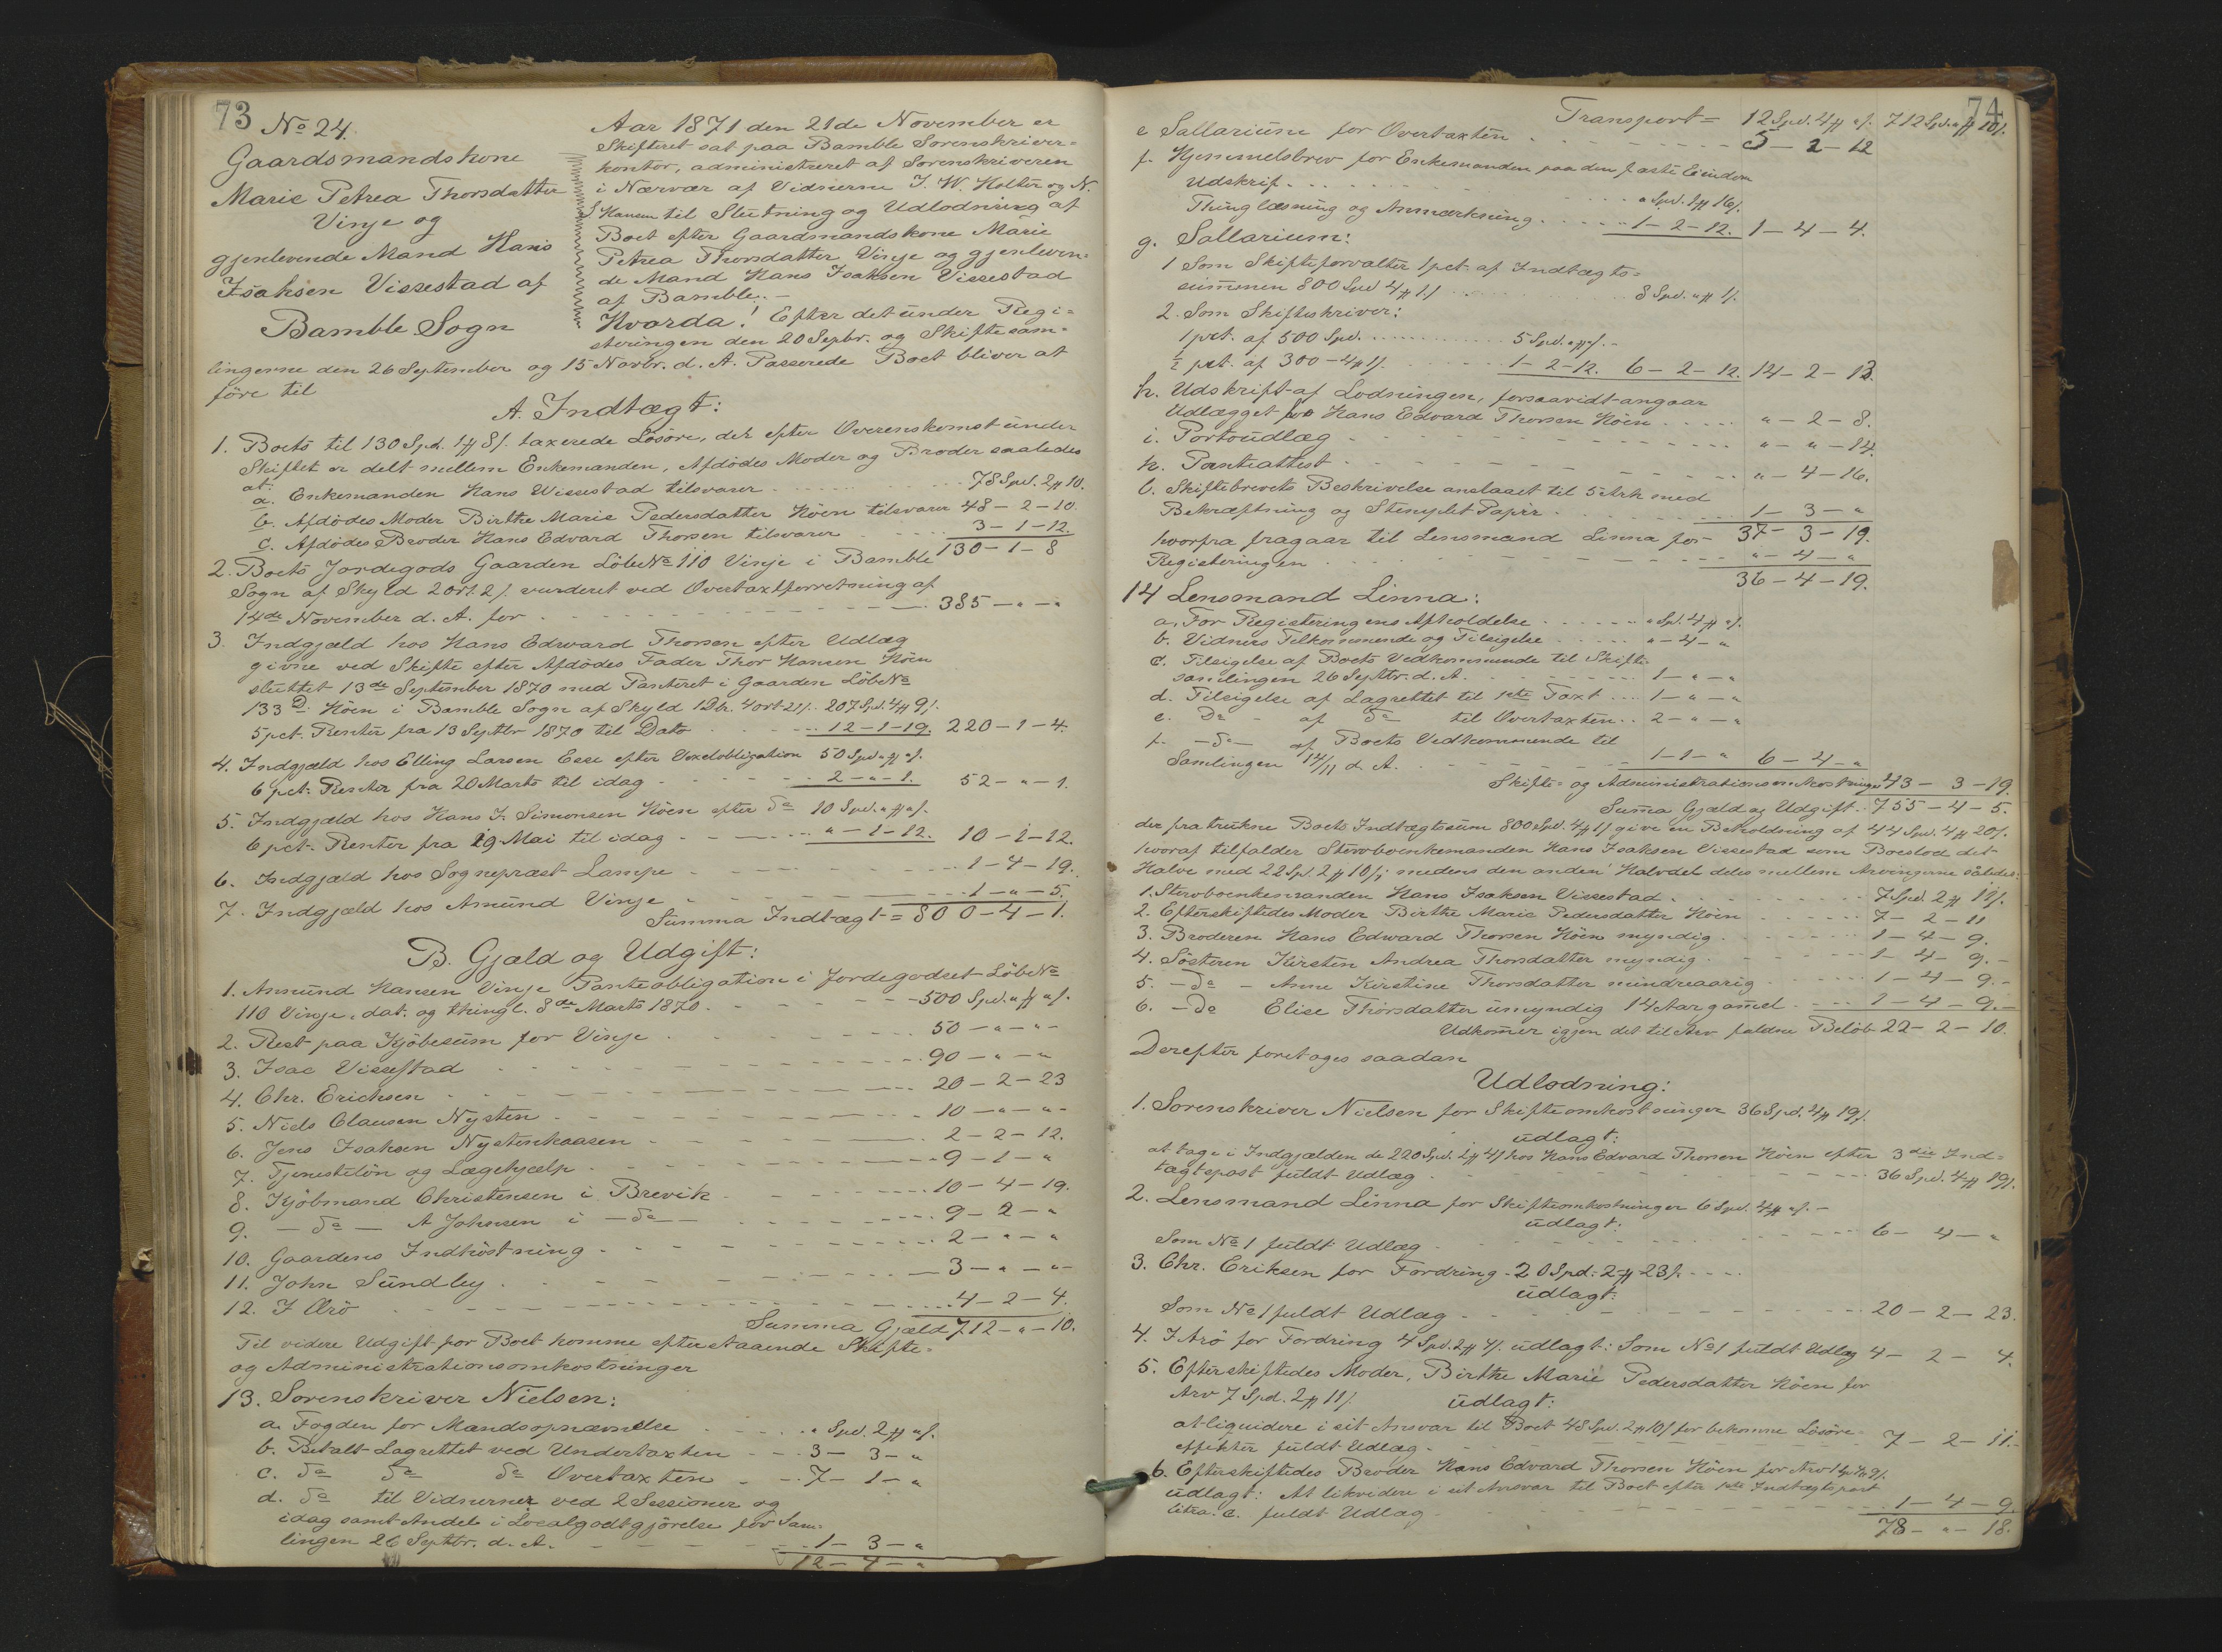 73
No 24.
Gaardsmandskone
Marie Petrea Thorsdatter
Vinje og
gjenlevende Mand Hans
Isaksen Vissestad af
Bamble Sogn
Aar 1871 den 21de November er
Skifteret sat paa Bamble Sorenskriver=
kontor, administreret af Sorenskriveren
i Nærvær af Vidnerne J. W. Holter og N.
Hansen til Slutning og Udlodning af
Boet efter Gaardsmandskone Marie
Petrea Thorsdatter Vinje og gjenleven=
de Mand Hans Isaksen Vissestad
af Bamble. –
Hvorda! Efter det under Regi=
streringen den 20 Septbr. og Skiftesam=
lingerne den 26 September og 15 Novbr. d. A. Passerede Boet bliver at
före til
A. Indtægt:
1. Boets til 130 Spd. 1 # 8 /. taxerede Lösöre, der efter Overenskomst under
Skiftet er delt mellem Enkemanden, Afdödes Moder og Broder saaledes
at:
a. Enkemanden Hans Wissestad tilsvarer 78 Spd. 2 # 10.
b. Afdödes Moder Birthe Marie Pedersdatter Höen tilsvarer 48 – 2 – 10.
c. Afdödes Broder Hans Edvard Thorsen tilsvarer 3 – 1 – 12.
130 – 1 – 8
2. Boets Jordegods Gaarden Löbe No 110 Vinje i Bamble
Sogn af Skyld 2 ort. 2 /. vurderet ved Overtaxtforretning af
14de November d. A. for 385 – " – "
3. Indgjæld hos Hans Edward Thorsen efter Udlæg
givne ved Skifte efter Afdödes Fader Thor Hansen Höen
sluttet 13de September 1870 med Panteret i Gaarden Löbe No
133 D. Höen i Bamble Sogn af Skyld 1 Dlr. 4 ort 21 /. 207 Spd. 4 # 9 /.
5 pct. Renter fra 13 Septbr 1870 til Dato 12 – 1 – 19. 220 – 1 – 4.
4. Indgjæld hos Elling Larsen Esse efter Vexelobligation 50 Spd " # " /.
6 pct. Renter fra 20 Marts til idag 2 – " – 1. 52 – " – 1.
5. Indgjæld hos Hans J. Simonsen Höen efter do 10 Spd. " # " /.
6 pct. Renter fra 19 Mai til idag " – 1 – 12. 10 – 1 – 12.
6. Indgjæld hos Sognepræst Lampe 1 – 4 – 19.
7. Indgjæld hos Amund Vinje 1 – " – 5.
Summa Indtægt = 800 – 4 – 1.
B. Gjæld og Udgift:
1. Amund Hansen Vinje Panteobligation i Jordegodset Löbe No
110 Vinje, dat. og thingl. 8de Marts 1870 500 Spd. " # " /.
2. Rest paa Kjöbesum for Vinje 50 – " – "
3. Isac Vissestad 90 – " – "
4. Chr. Erichsen 20 – 2 – 23
5. Niels Clausen Nysten 10 – " – "
6. Jens Isaksen Nystenkaasen 2 – 2 – 12.
7. Tjenestelön og Lægehjælp 9 – 1 – "
8. Kjöbmand Christensen i Brevik 10 – 4 – 19.
9. – do – A Johnsen i – do – 9 – 2 – "
10. Gaardens Indhöstning 2 – " – "
11. John Sundby 3 – " – "
12. J Örö 4 – 2 – 4.
Summa Gjæld 712 – " – 10.
Til videre Udgift for Boet komme efterstaaende Skifte=
og Administrationsomkostninger
13. Sorenskriver Nielsen:
a. Fogden for Mandsopnævnelse " Spd. 2 # " /.
b. Betalt Lagrettet ved Undertaxten 3 – 3 – "
c. do do do Overtaxten 7 – 1 – "
d. do til Vidnerner ved 2 Sessioner og
idag samt Andel i Localgodtgjörelse for Sam=
lingen 26 Septbr. d. A. 1 – 3 – "
12 – 4 – "
74
Transport = 12 Spd. 4 # " /. 712 Spd. " # 10 /.
e Sallarium for Overtaxten 5 – 2 – 12
f. Hjemmelsbrev for Enkemanden paa den faste Eiendom
Udskrif. " Spd. 1 # 16 /.
Thinglæsning og Anmærkning 1 – 2 – 12. 1 – 4 – 4.
g. Sallarium:
1 Som Skifteforvalter 1 pct. af Indtægts=
summen 800 Spd 4 # 1 / 8 Spd. " # 1 /.
2. Som Skifteskriver:
1 pct. af 500 Spd. 5 Spd. " # " /. –
½ pct. af 300 – 4 # 1 /. 1 – 2 – 12. 6 – 2 – 12. 14 – 2 – 13.
h. Udskrift af Lodningen, forsaavidt angaar
Udlægget for Hans Edvard Thorsen Höen " – 2 – 8.
i. Portoudlæg " – " – 14.
k. Panteattest " – 4 – 16.
l. Skiftebrevets Beskrivelse anslaaet til 5 Ark med
Bekræftning og Stemplet Papir 1 – 3 – "
37 – 3 – 19.
hvorfra fragaar til Lensmand Linna for
Registeringen " – 4 – "
36 – 4 – 19.
14 Lensmand Linna:
a. For Registeringens Afholdelse " Spd. 4 # " /.
b. Vidners Tilkommende og Tilsigelse " – 4 – "
c. Tilsigelse af Boets Vedkommende til Skifte
samlingen 26 Septbr. d. A. 1 – " – "
d. Tilsigelse af Lagrettet til 1ste Taxt 1 – " – "
e. Do af do til Overtaxten 2 – " – "
f. – do – af Boets Vedkommende til
Samlingen 14/11 d. A. 1 – 1 – " 6 – 4 – "
Skifte= og Administrationsomkostninger 43 – 3 – 19.
Summa Gjæld og Udgift 755 – 4 – 5.
der fratrukne Boets Indtægtssum 800 Spd. 4 # 1 / give en Beholdning af 44 Spd. 4 # 20 /.
hvoraf tilfalder Stervboenkemanden Hans Isaksen Vissestad som Boeslod det
Halve med 22 Spd. 2 # 10 /; medens den anden Halvdel deles mellem Arvingerne således:
1. Stervboenkemanden Hans Isaksen Vissestad 7 Spd. 2 # 11 /.
2. Efterskiftedes Moder Birthe Marie Pedersdatter Höen 7 – 2 – 11
3. Broderen Hans Edward Thorsen Höen myndig 1 – 4 – 9.
4. Sösteren Kirsten Andrea Thorsdatter myndig 1 – 4 – 9. –
5. – do – Anne Kirstine Thorsdatter mindreaarig 1 – 4 – 9. –
6. – Do Elise Thorsdatter umyndig 14 Aar gamel 1 – 4 – 9. –
Udkomer igjen det til Arv faldne Belöb 22 – 2 – 10.
Derefter foretages saadan
Udlodning:
1. Sorenskriver Nielsen for Skifteomkostninger 36 Spd. 4 # 19 /.
udlagt:
at tage i Indgjælden de 220 Spd. 1 # 4 / hos Hans Edvard Thorsen Höen efter 3die Ind=
tægtspost fuldt Udlæg 36 Spd. 4 # 19 /.
2. Lensmand Linna for Skifteomkostninger 6 Spd. 4 # " /. –
udlagt:
Som No 1 fuldt Udlæg 6 – 4 – "
3. Chr. Eriksen for Fordring 20 Spd: 2 # 23 /.
udlagt:
Som No 1 fuldt Udlæg 20 – 2 – 23.
4. J Arö for Fordring 4 Spd. 2 # 4 /. udlagt: Som No 1 fuldt Udlæg 4 – 2 – 4.
5. Efterskiftedes Moder, Birthe Marie Pedersdatter Höen for
Arv 7 Spd. 2 # 11 /. udlagt:
at liquidere i sit Ansvar til Boet 48 Spd. 2 # 10 / for bekomne Lösöre=
effekter fuldt Udlæg 7 – 2 – 11. –
6. Efterskiftedes Broder Hans Edvard Thorsen Höen for Arv 1 Spd 4 # 9 /.
udlagt: At likvidere i sit Ansvar til Boet efter 1ste Indtægtspost
litra. c. fuldt Udlæg 1 – 4 – 9.
78 – " – 18.